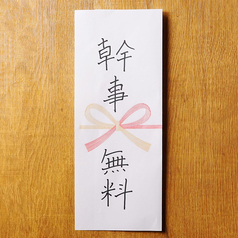 幹事
無料